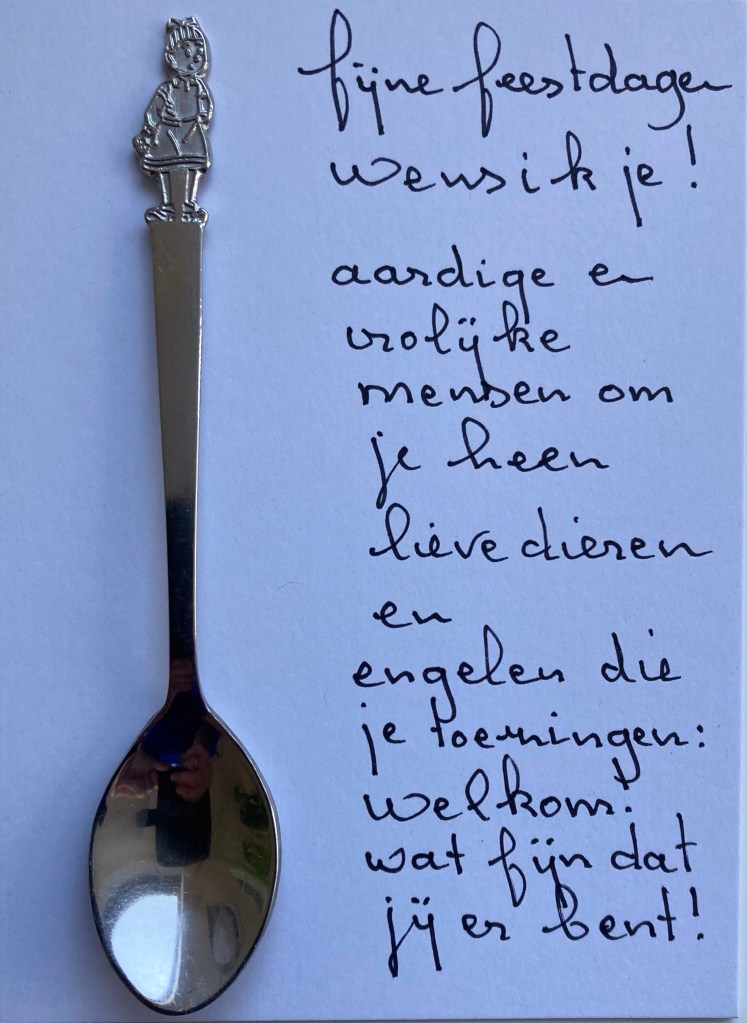 fijne feestdagen
wens ik je!
aardige en
vrolijke
mensen om
je heen
lieve dieren
en
engelen die
je toezingen:
welkom!
wat fijn dat
jij er bent!